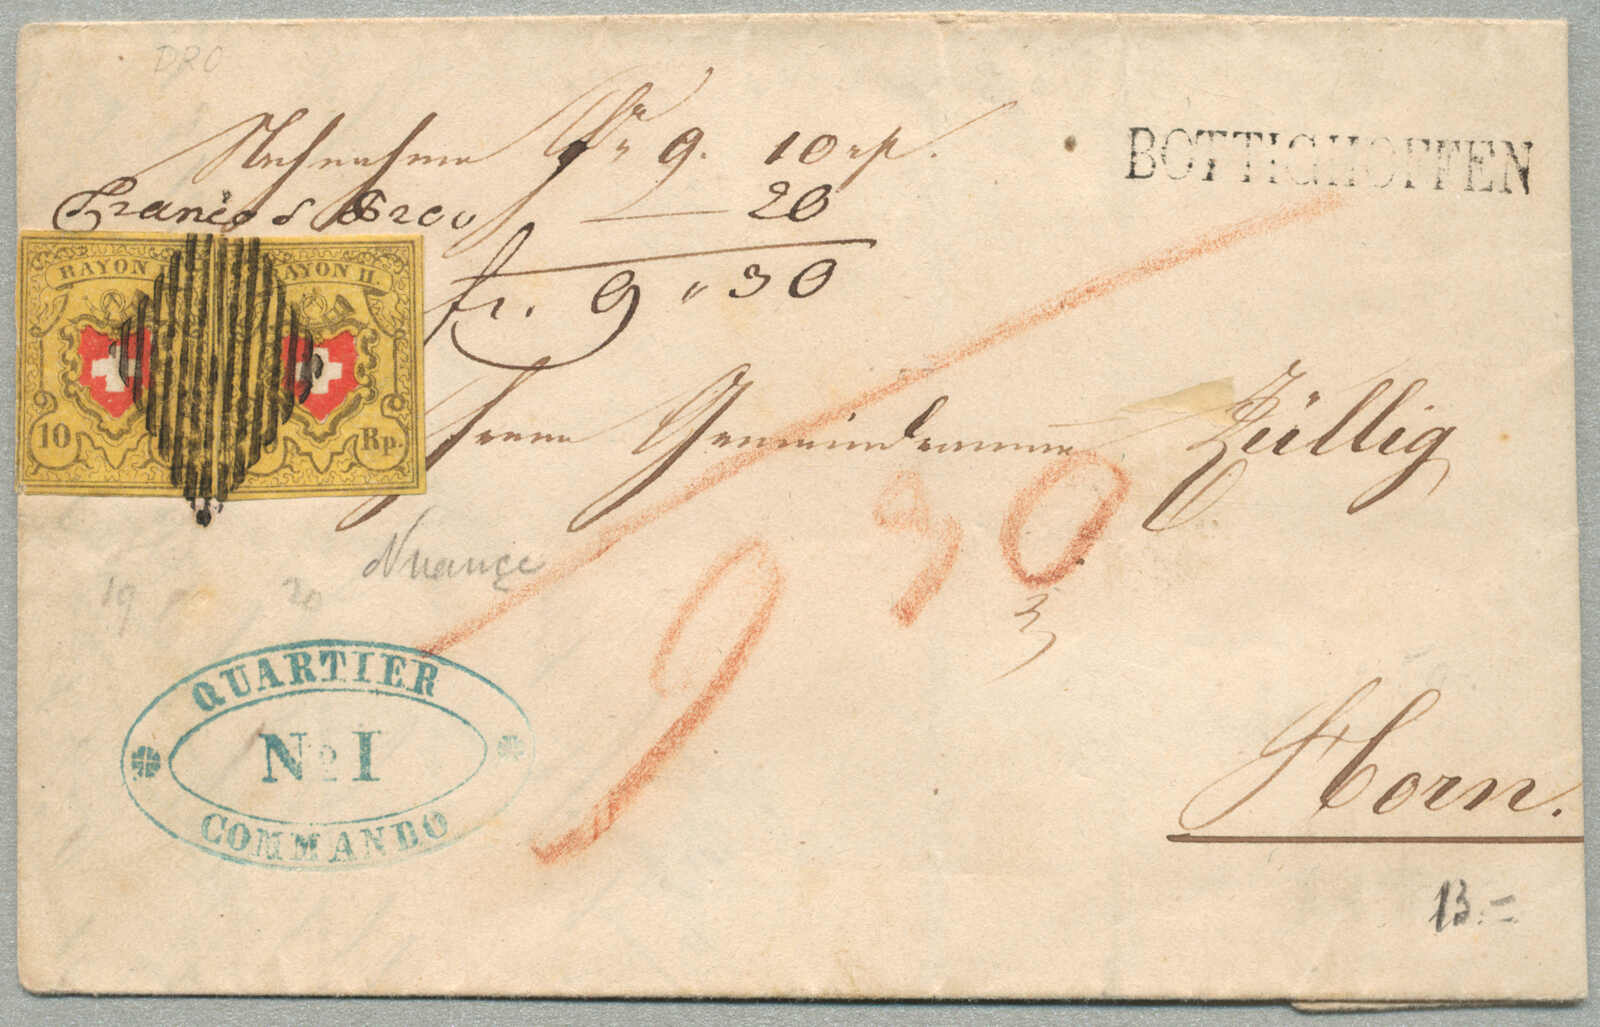 DRO
Nachnahme fr. 9. 10 rp.
BOTTIGHOFFEN
Franco 20
fr. 9 " 30
RAYON AYON II
10 Rp.
Herrn Gemeindeammann Züllig
9 30
Nuance
19 20
3
QUARTIER
No I
COMMANDO
Horn.
13.=